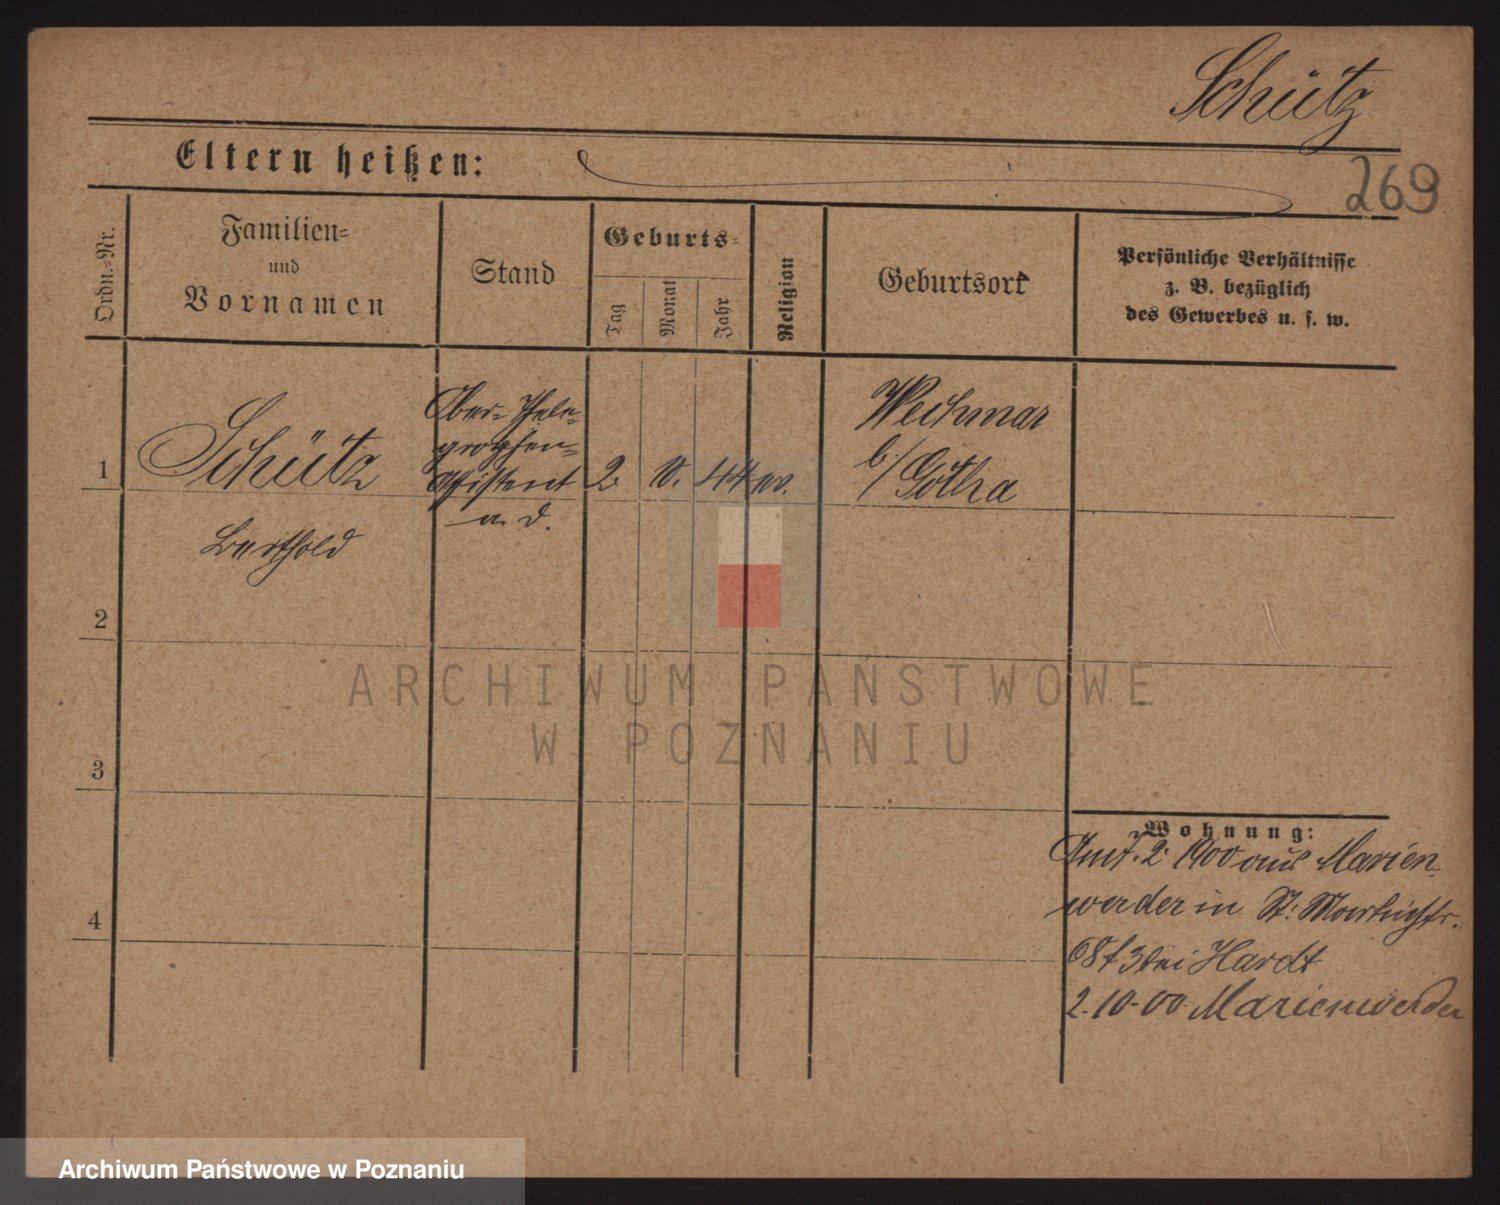 Schütz
Eltern heißen:
269
Ordn.=Nr.
Familien=
und
Vornamen
Stand
Geburts=
Tag
Monat
Jahr
Religion
Geburtsort
Persönliche Verhältnisse
z. B. bezüglich
des Gewerbes u. s. w.
1
Schütz
Berthold
Ober= Thele=
graphen=
Assistent
a. D.
2.
10.
44
ev.
Wechmar
b./ Gotha
2
3
4
Wohnung:
2. 1900 aus Marien=
werder in St. Martinstr.
68 f 3 bei Hardt
2.10.00. Marienwerder
ARCHIWUM PAŃSTWOWE
W POZNANIU
Archiwum Państwowe w Poznaniu